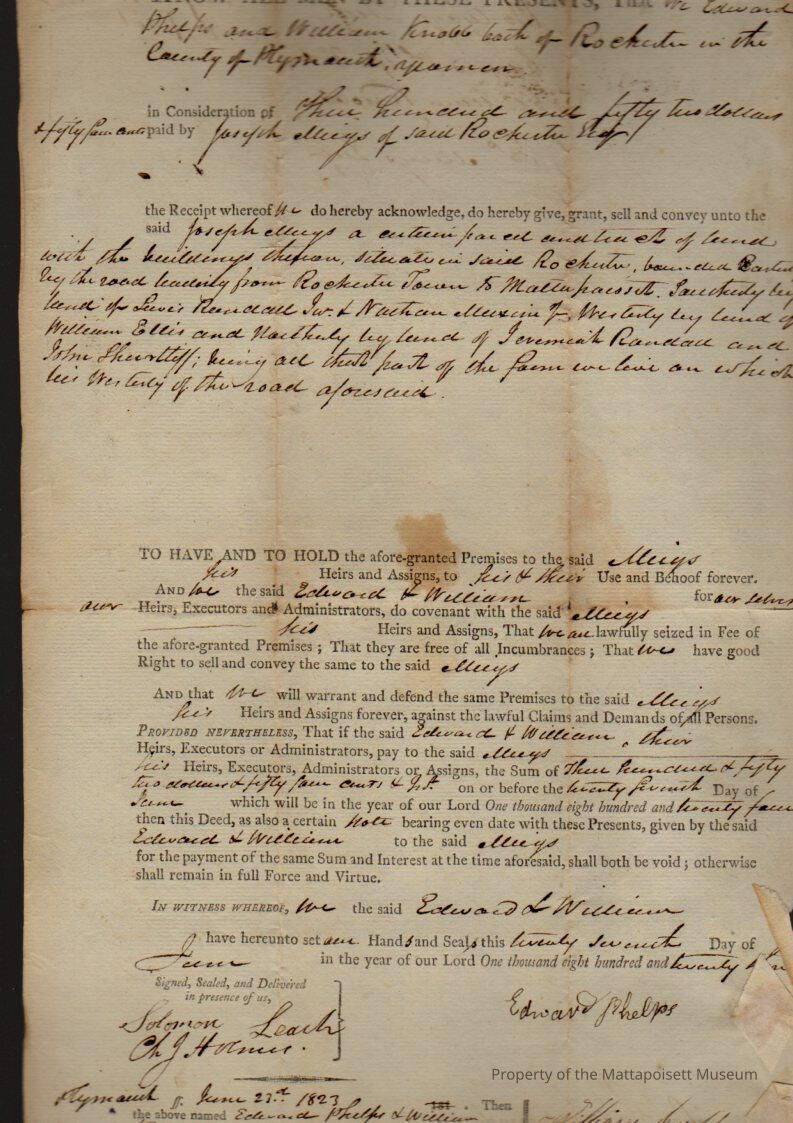 KNOW ALL MEN BY THESE PRESENTS, That We Edward
Phelps and William Knobb both of Rochester in the
County of Plymouth, yeomen
in Consideration of Three hundred and fifty two dollars
& fifty four cents paid by Joseph Meigs of said Rochester Esq
the Receipt whereof We do hereby acknowledge, do hereby give, grant, sell and convey unto the
said Joseph Meigs a certain parcel and tract of land
with the buildings thereon, situate in said Rochester, bounded Easterly
by the road leading from Rochester Town to Mattapoisett. Southerly by
land of Lewis Randall Jur. & Nathan Maxim Westerly by land of
William Ellis and Northerly by land of Jeremiah Randall and
John Shurtliff; being all that part of the farm we live on which
lies Westerly of the road aforesaid.
TO HAVE AND TO HOLD the afore-granted Premises to the said Meigs
his Heirs and Assigns, to his & their Use and Behoof forever.
AND We the said Edward & William for our selves
our Heirs, Executors and Administrators, do covenant with the said Meigs
his Heirs and Assigns, That We are lawfully seized in Fee of
the afore-granted Premises ; That they are free of all Incumbrances ; That We have good
Right to sell and convey the same to the said Meigs
AND that We will warrant and defend the same Premises to the said Meigs
his Heirs and Assigns forever, against the lawful Claims and Demands of all Persons.
PROVIDED NEVERTHELESS, That if the said Edward & William, their
Heirs, Executors or Administrators, pay to the said Meigs
his Heirs, Executors, Administrators or Assigns, the Sum of Three hundred & fifty
two dollars & fifty four cents & Int. on or before the twenty seventh Day of
June which will be in the year of our Lord One thousand eight hundred and twenty four
then this Deed, as also a certain Note bearing even date with these Presents, given by the said
Edward & William to the said Meigs
for the payment of the same Sum and Interest at the time aforesaid, shall both be void ; otherwise
shall remain in full Force and Virtue.
IN WITNESS WHEREOF, We the said Edward & William
have hereunto set our Hands and Seals this twenty seventh Day of
June in the year of our Lord One thousand eight hundred and twenty
Signed, Sealed, and Delivered
in presence of us,
Solomon Leach
Ch J Holmes.
Edward Phelps
Property of the Mattapoisett Museum
Plymouth ss. June 27th 1823. Then
the above named Edward Phelps & William